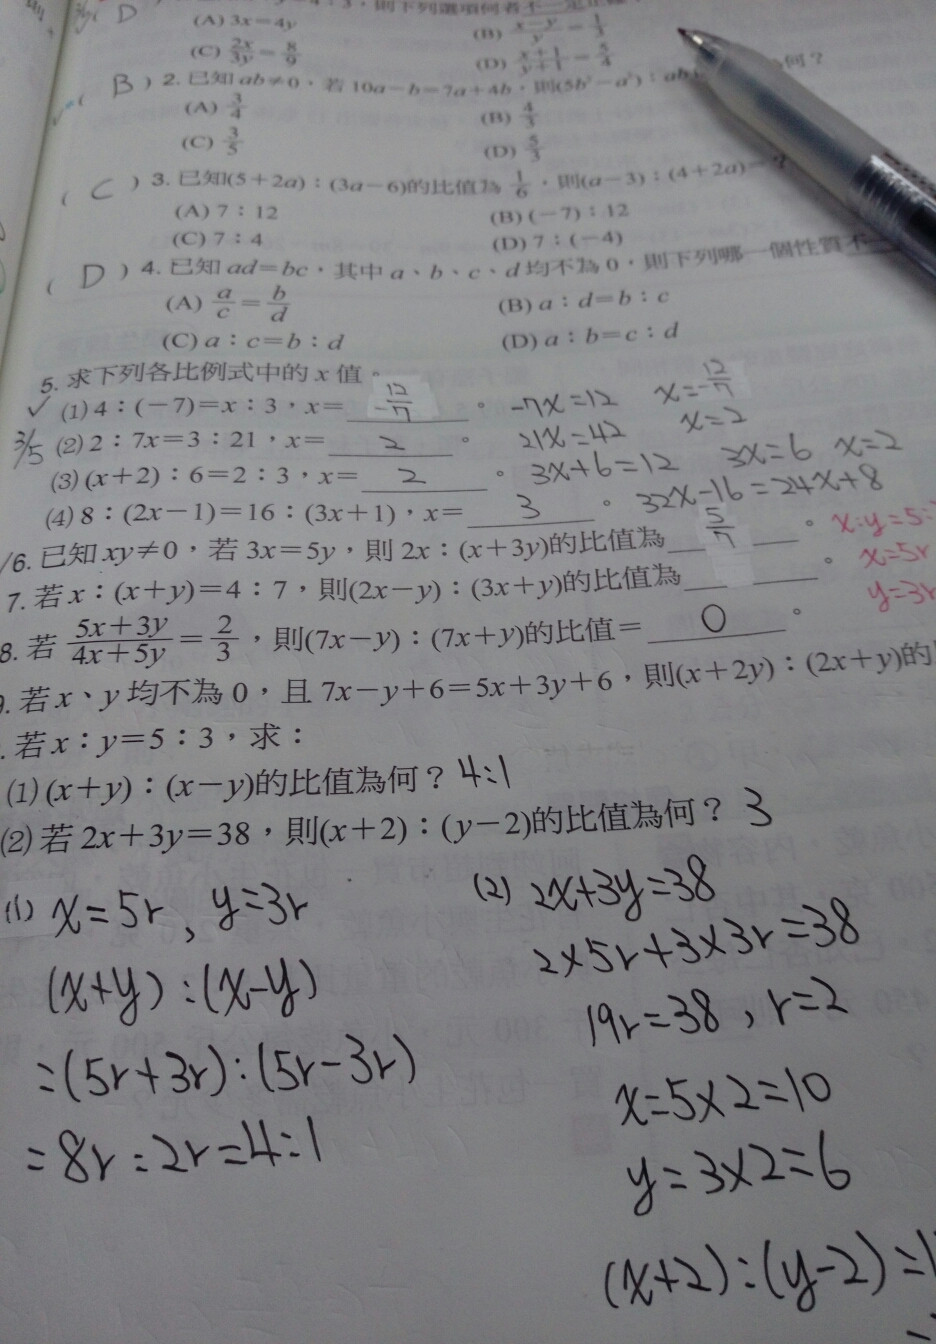 D
(A) 3x=4y
(B) (x-y)/y = 1/3
(C) 2x/3y = 8/9
(D) (x+1)/(y+1) = 5/4
( B ) 2. 已知 ab≠0，若 10a-b=7a+4b，則(5b²-a²)：ab 何？
(A) 3/4
(B) 4/3
(C) 3/5
(D) 5/3
( C ) 3. 已知(5+2a)：(3a-6)的比值為 1/6，則(a-3)：(4+2a)=？
(A) 7：12
(B) (-7)：12
(C) 7：4
(D) 7：(-4)
( D ) 4. 已知 ad=bc，其中 a、b、c、d 均不為 0，則下列哪一個性質不
(A) a/c = b/d
(B) a：d=b：c
(C) a：c=b：d
(D) a：b=c：d
5. 求下列各比例式中的 x 值。
✓ (1) 4：(-7)=x：3，x= 12/-7 。 -7x=12 x=-12/7
3/5 (2) 2：7x=3：21，x= 2 。 21x=42 x=2
(3) (x+2)：6=2：3，x= 2 。 3x+6=12 3x=6 x=2
(4) 8：(2x-1)=16：(3x+1)，x= 3 。 32x-16=24x+8
6. 已知 xy≠0，若 3x=5y，則 2x：(x+3y)的比值為 5/7 。 x:y=5:
7. 若 x：(x+y)=4：7，則(2x-y)：(3x+y)的比值為 。 x=5r
y=3r
8. 若 (5x+3y)/(4x+5y) = 2/3，則(7x-y)：(7x+y)的比值= 0 。
9. 若 x、y 均不為 0，且 7x-y+6=5x+3y+6，則(x+2y)：(2x+y)的
. 若 x：y=5：3，求：
(1) (x+y)：(x-y)的比值為何？ 4:1
(2) 若 2x+3y=38，則(x+2)：(y-2)的比值為何？ 3
(1) x=5r, y=3r
(x+y):(x-y)
=(5r+3r):(5r-3r)
=8r:2r=4:1
(2) 2x+3y=38
2×5r+3×3r=38
19r=38, r=2
x=5×2=10
y=3×2=6
(x+2):(y-2)=1